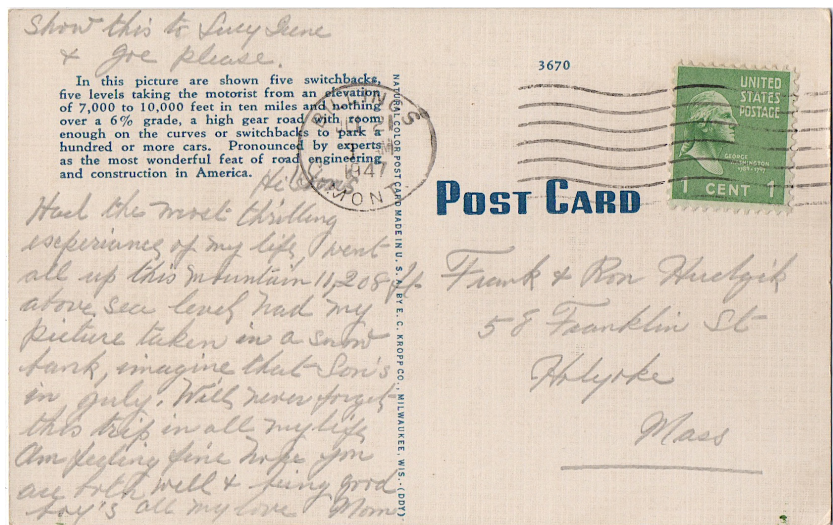 Show this to Lucy Irene
& Joe please.
In this picture are shown five switchbacks,
five levels taking the motorist from an elevation
of 7,000 to 10,000 feet in ten miles and nothing
over a 6% grade, a high gear road with room
enough on the curves or switchbacks to park a
hundred or more cars. Pronounced by experts
as the most wonderful feat of road engineering
and construction in America.
Hi Sons
Had the most thrilling
experiance of my life, went
all up this mountain 11,208 ft
above sea level, had my
picture taken in a snow
bank, imagine that Son's
in July. Will never forget
this trip in all my life
Am feeling fine hope you
are both well & being good
boy's all my love Mom
NATURAL COLOR POST CARD MADE IN U. S. A. BY E. C. KROPP CO., MILWAUKEE, WIS.-(DDY)
3670
BILLINGS
JUL 21
M
1947
MONT.
UNITED
STATES
POSTAGE
GEORGE
WASHINGTON
1 CENT 1
POST CARD
Frank & Ron
58 Franklin St
Holyoke
Mass